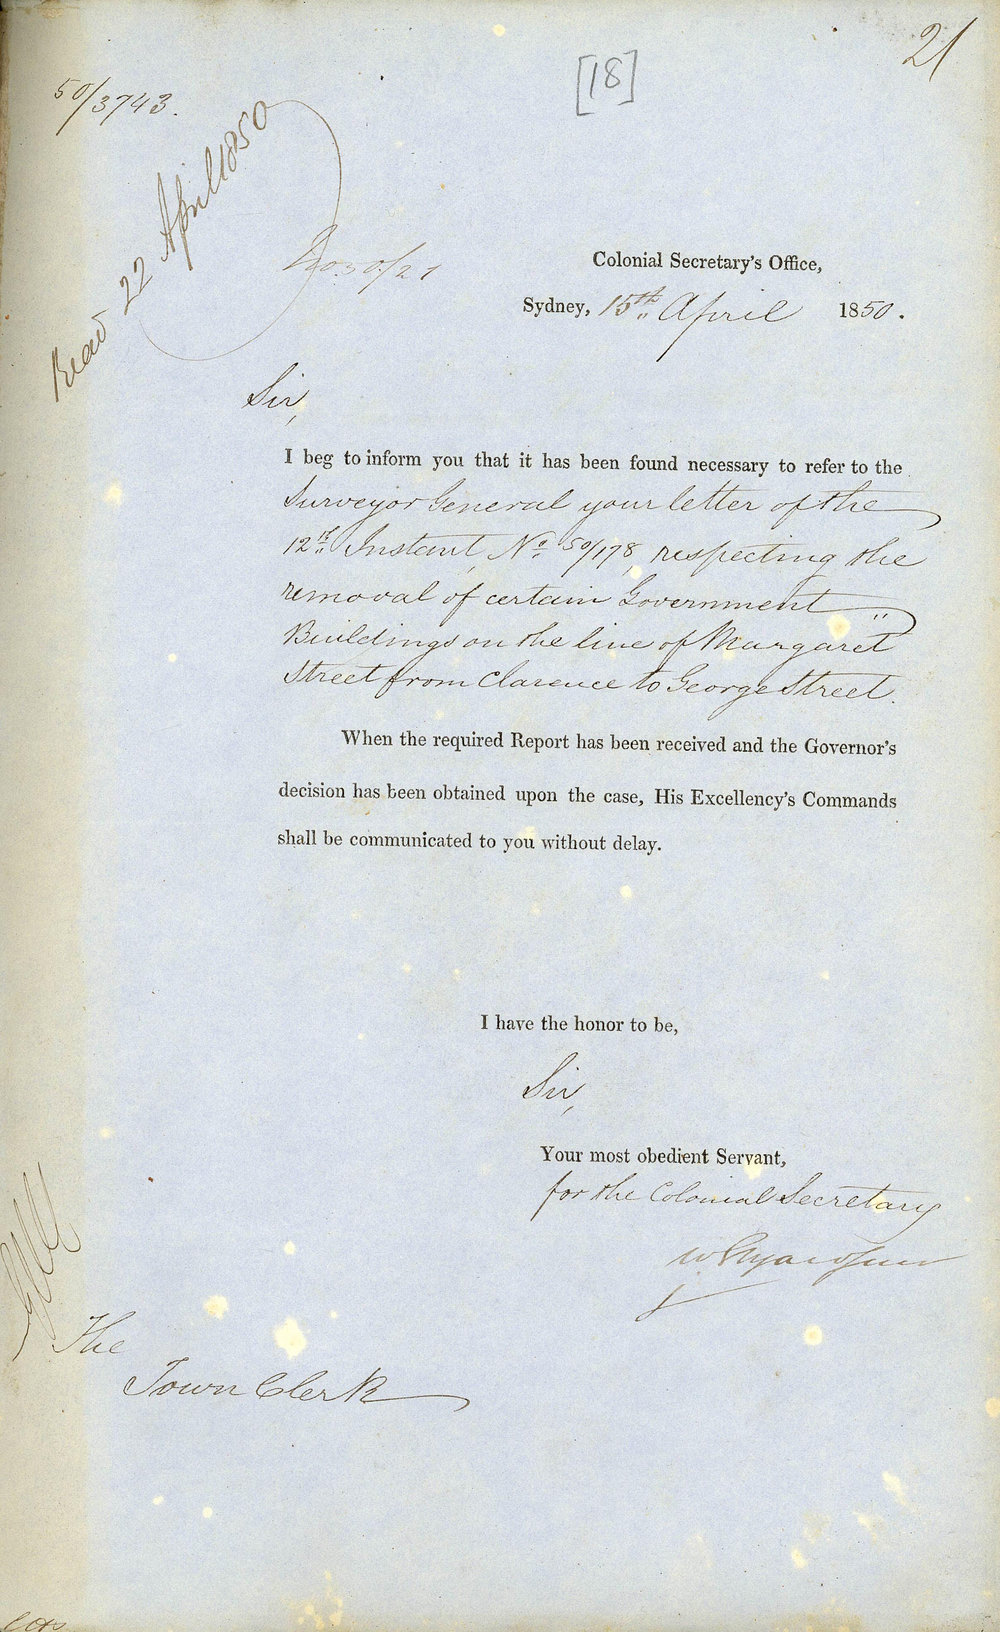 21
[18]
50/3743.
Read 22 April 1850
No 50/21
Colonial Secretary's Office,
Sydney, 15th April 1850.
Sir,
I beg to inform you that it has been found necessary to refer to the
Surveyor General your letter of the
12th Instant, No 50/178, respecting the
removal of certain Government
Buildings on the line of Margaret
Street from Clarence to George Street.
When the required Report has been received and the Governor's
decision has been obtained upon the case, His Excellency's Commands
shall be communicated to you without delay.
I have the honor to be,
Sir,
Your most obedient Servant,
for the Colonial Secretary
The
Town Clerk